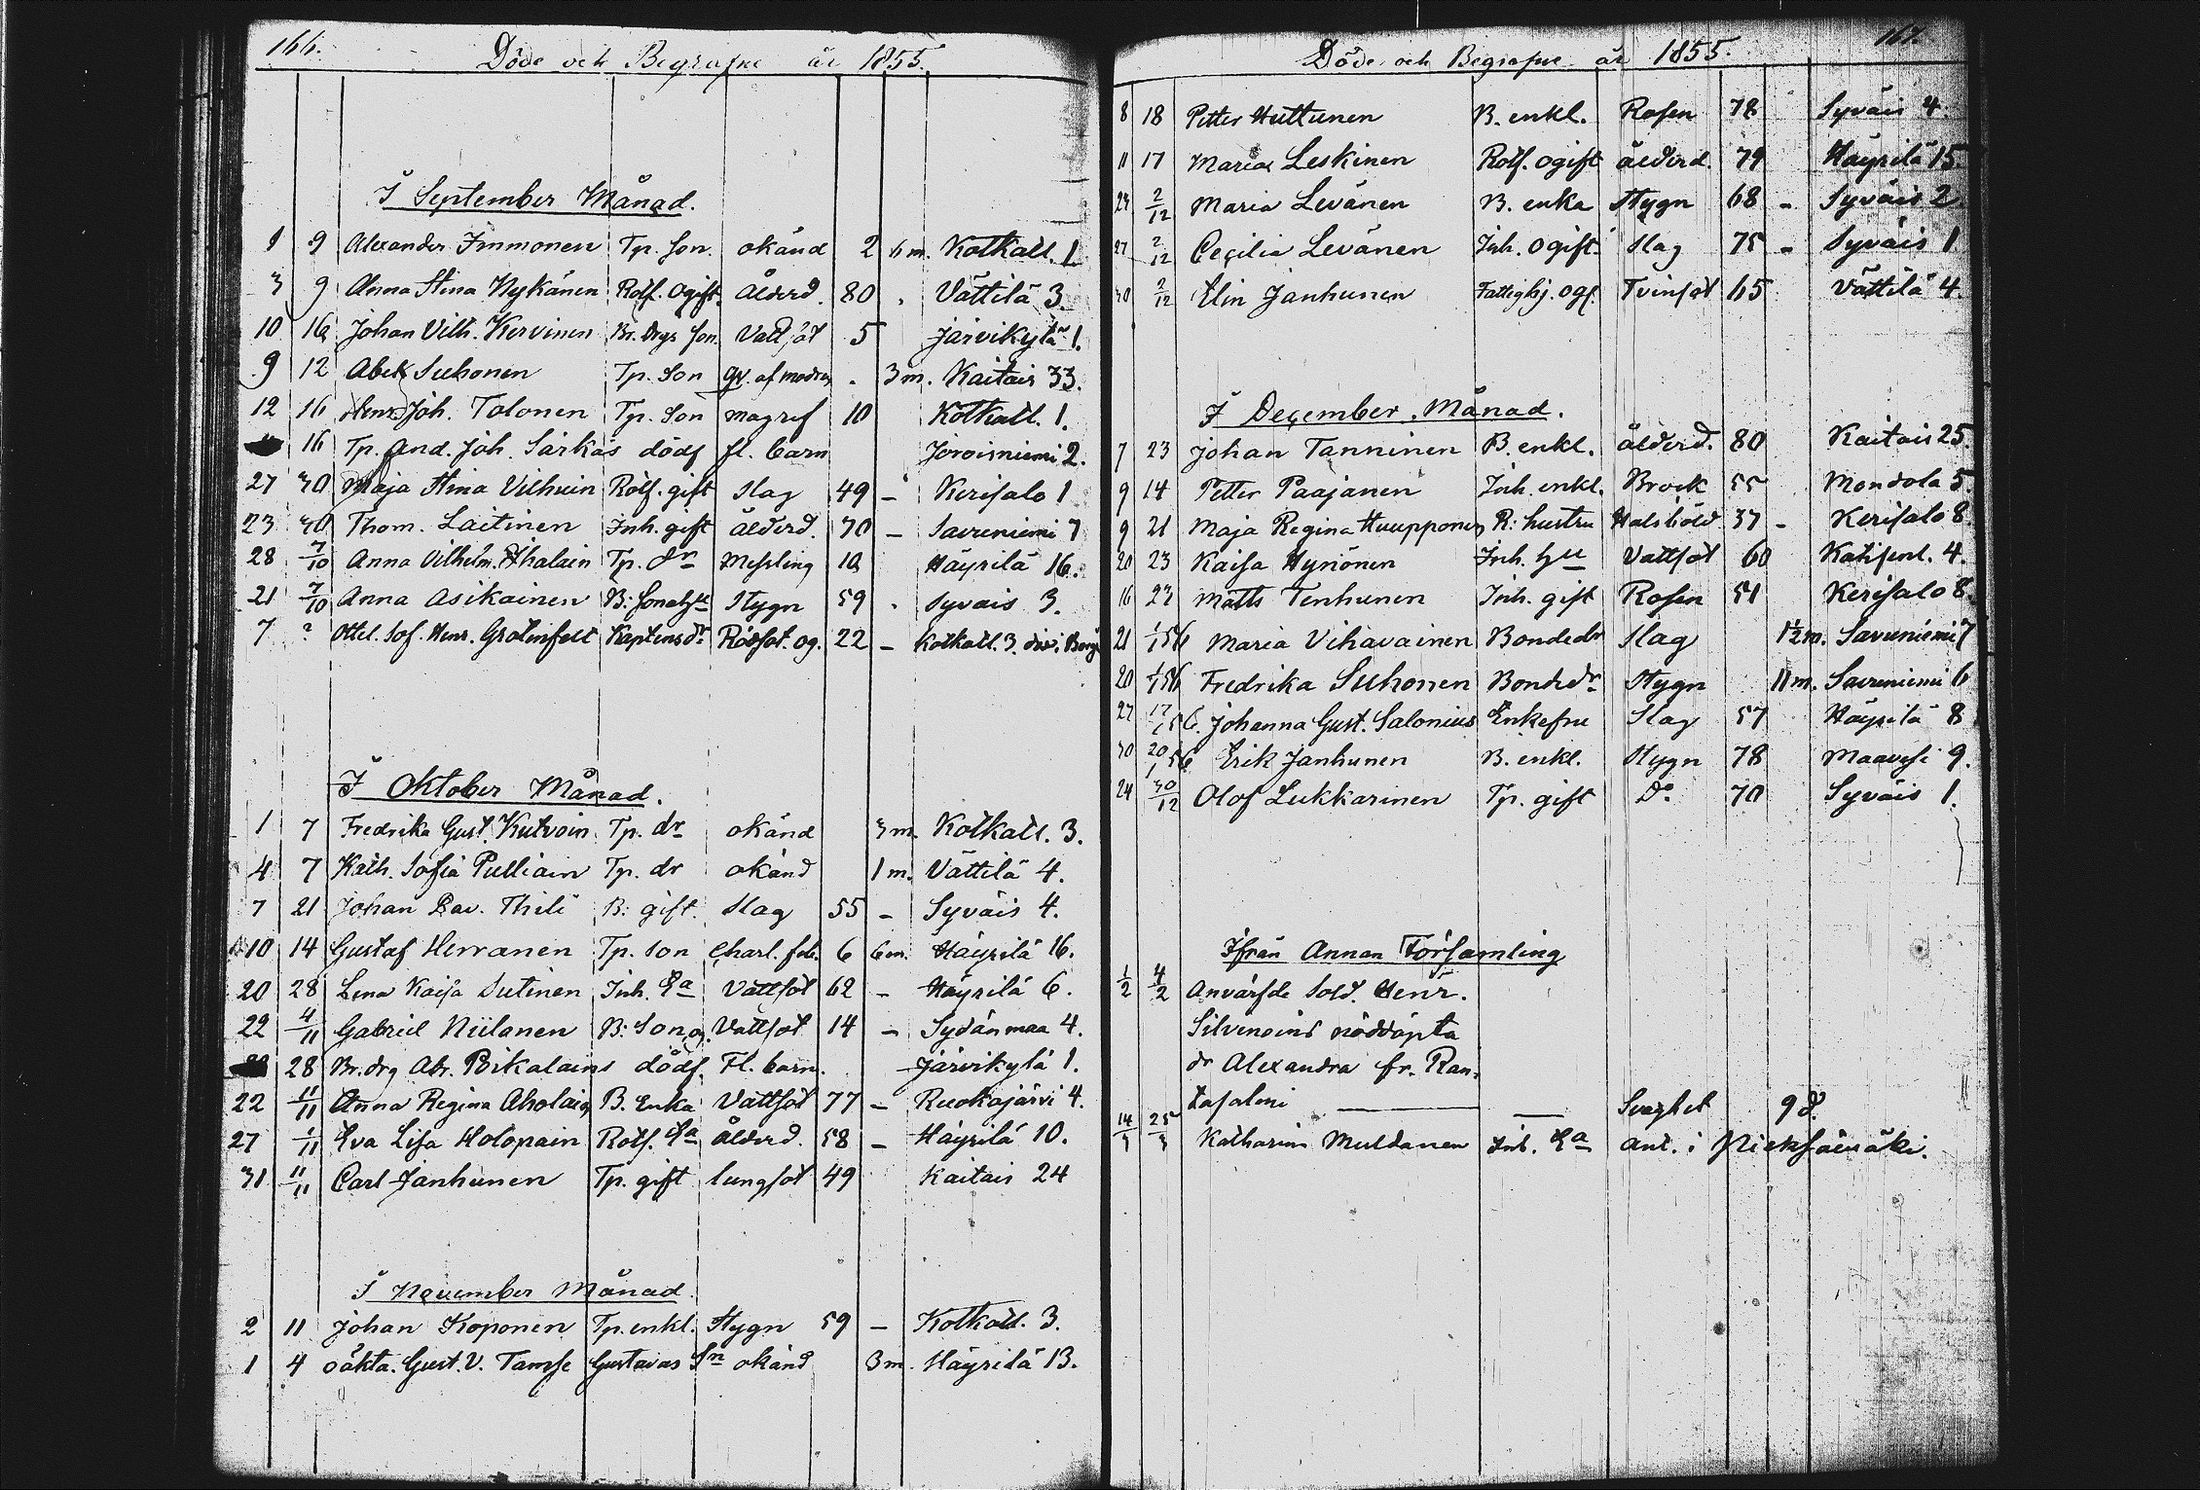 166.
Döde och Begrafne år 1855.
I September Månad.
1 9 Alexander Immonen Tp. Son. okänd 2 6 m. Kotkatl. 1
3 9 Anna Stina Nykänen Rotf. ogift. Ålderd. 80 Vättilä 3
10 16 Johan Vilh. Kervinen Br. drgs son. Vattsot 5 Järvikylä 1.
9 12 Abel Suhonen Tp. Son qv. af modren 3 m. Kaitais 33.
12 16 Henr. Joh. Tolonen Tp. Son magref 10 Kotkatl. 1.
16 Tp. And. Joh. Särkäs dödf fl. barn Joroisniemi 2.
27 30 Maja Stina Vilhuin Rotf. gift Slag 49 - Kerisalo 1
23 30 Thom. Laitinen Inh. gift ålderd. 70 - Savuniemi 7
28 7/10 Anna Vilhelm. Ihalain Tp. dr Messling 10 Häyrilä 16.
21 7/10 Anna Asikainen B: sonahu Stygn 59 Syväis 3.
7 ? Ottel. Sof. Henr. Grotenfelt Kaptensdr Rödsot. og. 22 - Kotkatl. 3.
I Oktober Månad.
1 7 Fredrika Gust. Kutvoin Tp. dr okänd 3 m. Kotkatl. 3.
4 7 Kath. Sofia Pulliain Tp. dr okänd 1 m. Vättilä 4.
7 21 Johan Dav. Thile B: gift. Slag 55 - Syväis 4.
10 14 Gustaf Herranen Tp. son Charl. feb. 6 6 m. Häyrilä 16.
20 28 Lena Kaisa Sutinen Inh. Ea Vattsot 62 - Häyrilä 6.
22 4/11 Gabriel Niilanen B: Son og. Vattsot 14 - Sydänmaa 4.
28 Br. drg Abr. Pirkalains dödf. Fl. barn. Järvikylä 1.
22 11/11 Anna Regina Aholain B. Enka Vattsot 77 - Ruokojärvi 4.
27 1/11 Eva Lisa Holopain Rotf. Ea Ålderd. 58 - Häyrilä 10.
31 11/11 Carl Janhunen Tp. gift lungsot 49 Kaitais 24
I November Månad.
2 11 Johan Koponen Tp. enkl. Stygn 59 - Kotkatl. 3.
1 4 oäkta. Gust. V. Tamse Gustavas Sn okänd 3 m. Häyrilä 13.
167.
Döde och Begrafne år 1855.
8 18 Petter Huttunen B. enkl. Rosen 72 Syväis 4.
11 17 Maria Leskinen Rotf. ogift ålderd. 79 Häyrilä 15.
24 2/12 Maria Levänen B. enka Stygn 68 - Syväis 2.
27 2/12 Cecilia Levänen Inh. ogift. Slag 75 - Syväis 1
30 2/12 Elin Janhunen Fattighj. ogf. Tvinsot 65 Vättilä 4.
I December Månad.
7 23 Johan Tanninen B. enkl. ålderd. 80 Kaitais 25
9 14 Petter Paajanen Inh. enkl. Brock 55 Mondola 5.
9 21 Maja Regina Huupponen R: hustru Halsböld 37 - Kerisalo 8.
20 23 Kaisa Hynönen Inh. hu Vattsot 60 Katisenl. 4.
16 23 Matts Tenhunen Inh. gift Rosen 51 Kerisalo 8.
21 1/1 56 Maria Vihavainen Bondedr Slag 1½ m. Savuniemi 7
20 1/1 56 Fredrika Suhonen Bondedr Stygn 11 m. Savuniemi 6
27 17/1 56. Johanna Gust. Salonius Enkefru Slag 57 Häyrilä 8
30 20/1 56 Erik Janhunen B. enkl. Stygn 78 Maavesi 9.
24 30/12 Olof Lukkarinen Tp. gift Do 70 Syväis 1.
Ifrån Annan Församling
1/2 4/2 Anvärfde Sold. Henr.
Silvenoins nöddöpta
dr Alexandra fr. Ran-
tasalmi Svaghet 9 d.
14/3 25/3 Katharina Muldanen Inh. Ea ant. i Pieksämäki.